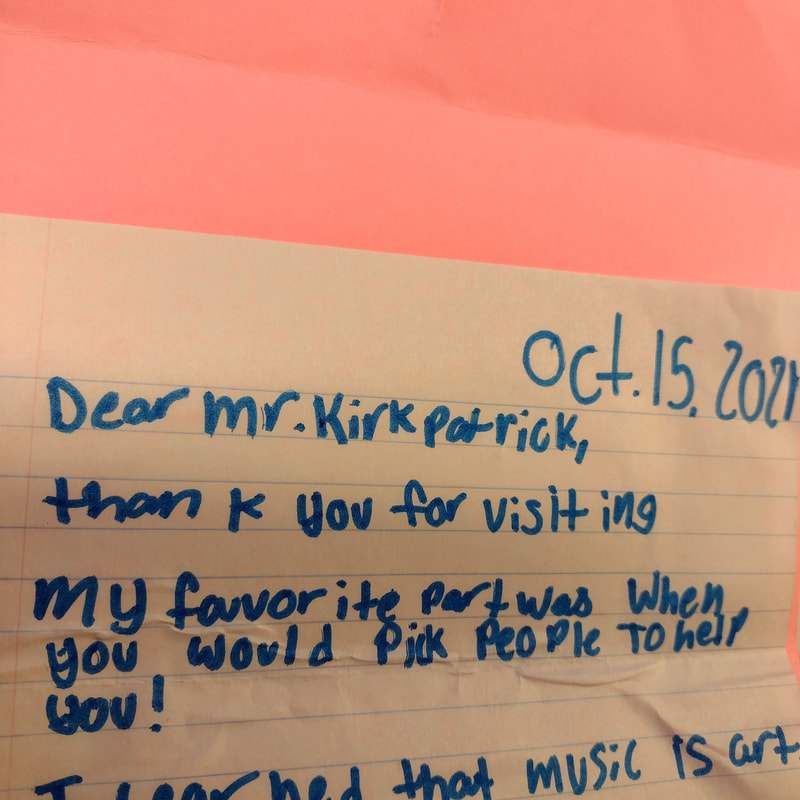 Oct. 15, 2021
Dear mr. Kirkpatrick,
thank you for visiting
my favorite part was when
you would pick people To help
you!
I learned that music is art.